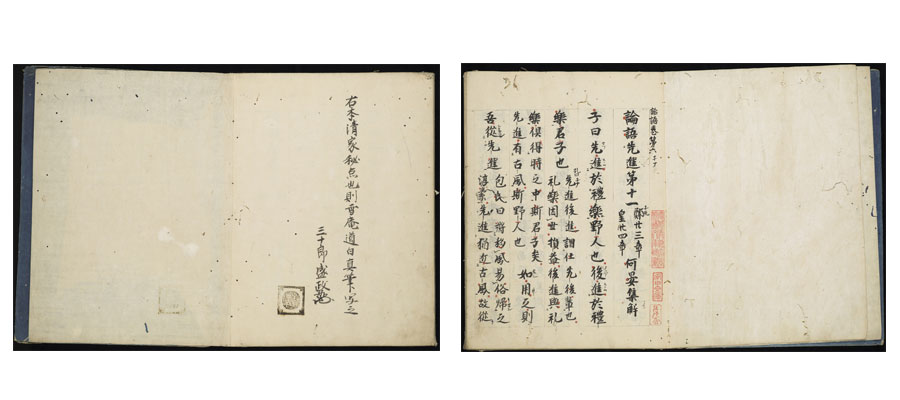 右本清家秘点也則雪庵道白真筆写之
三十郎盛政
論語巻第六
論語先進第十一
鄭廿三章
皇廿四章
何晏集解
子曰先進於禮樂野人也後進於禮
樂君子也
先進後進謂仕先後輩也
礼樂因世損益後進與礼
樂俱得時之中斯君子矣
先進有古風斯野人也
如用之則
吾從先進
包氏曰將移風易俗歸之
淳素先進猶近古風故從